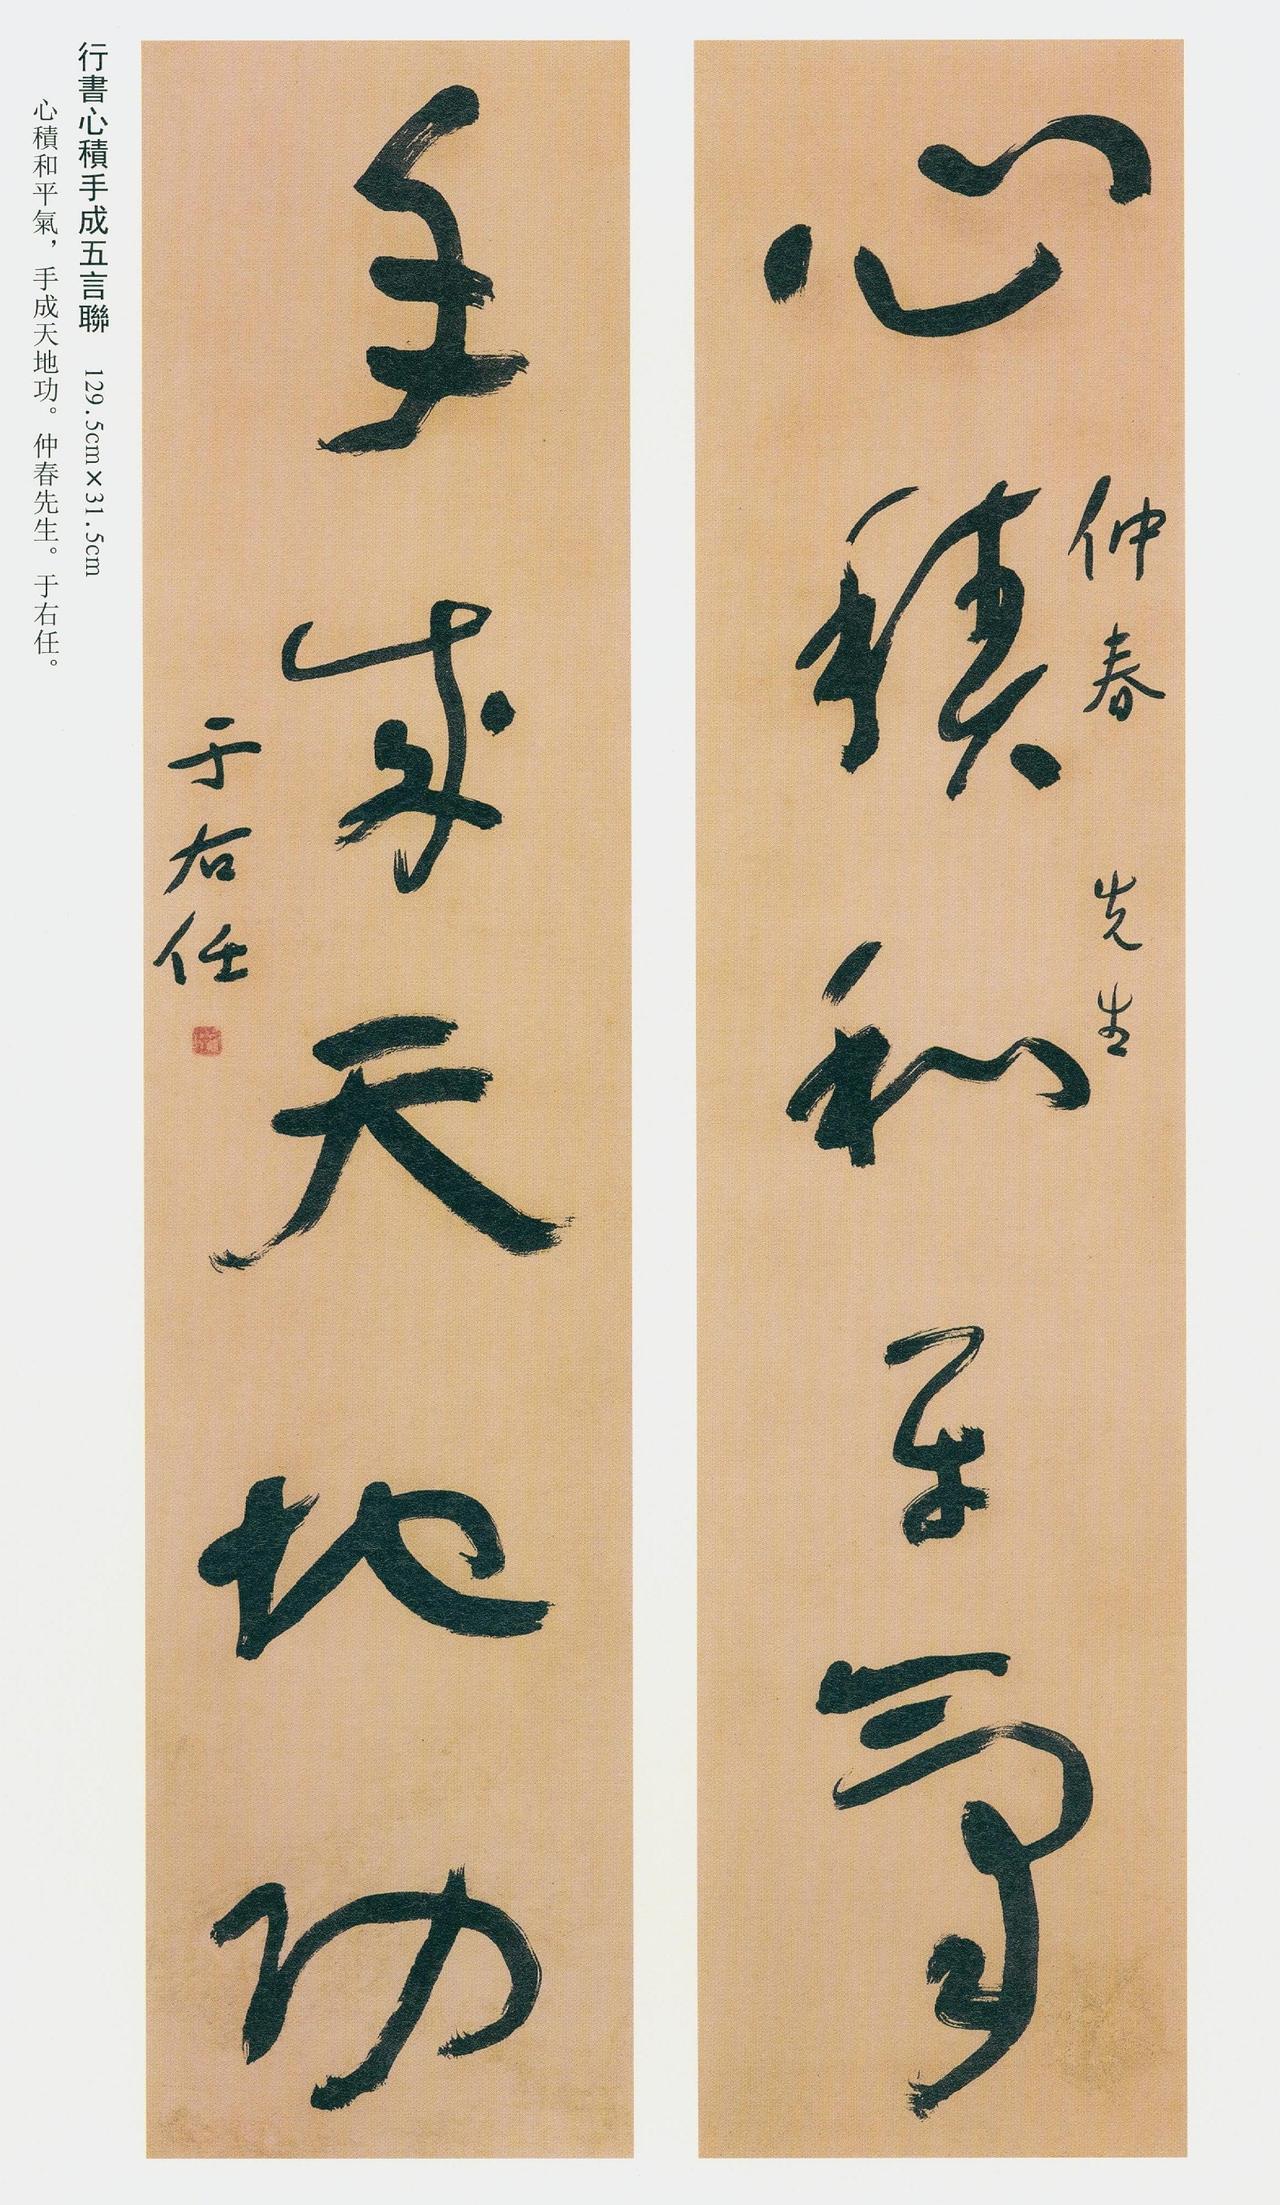 心積和平氣
仲春先生
手成天地功
于右任
行書心積手成五言聯 129.5cm×31.5cm
心積和平氣，手成天地功。仲春先生。于右任。